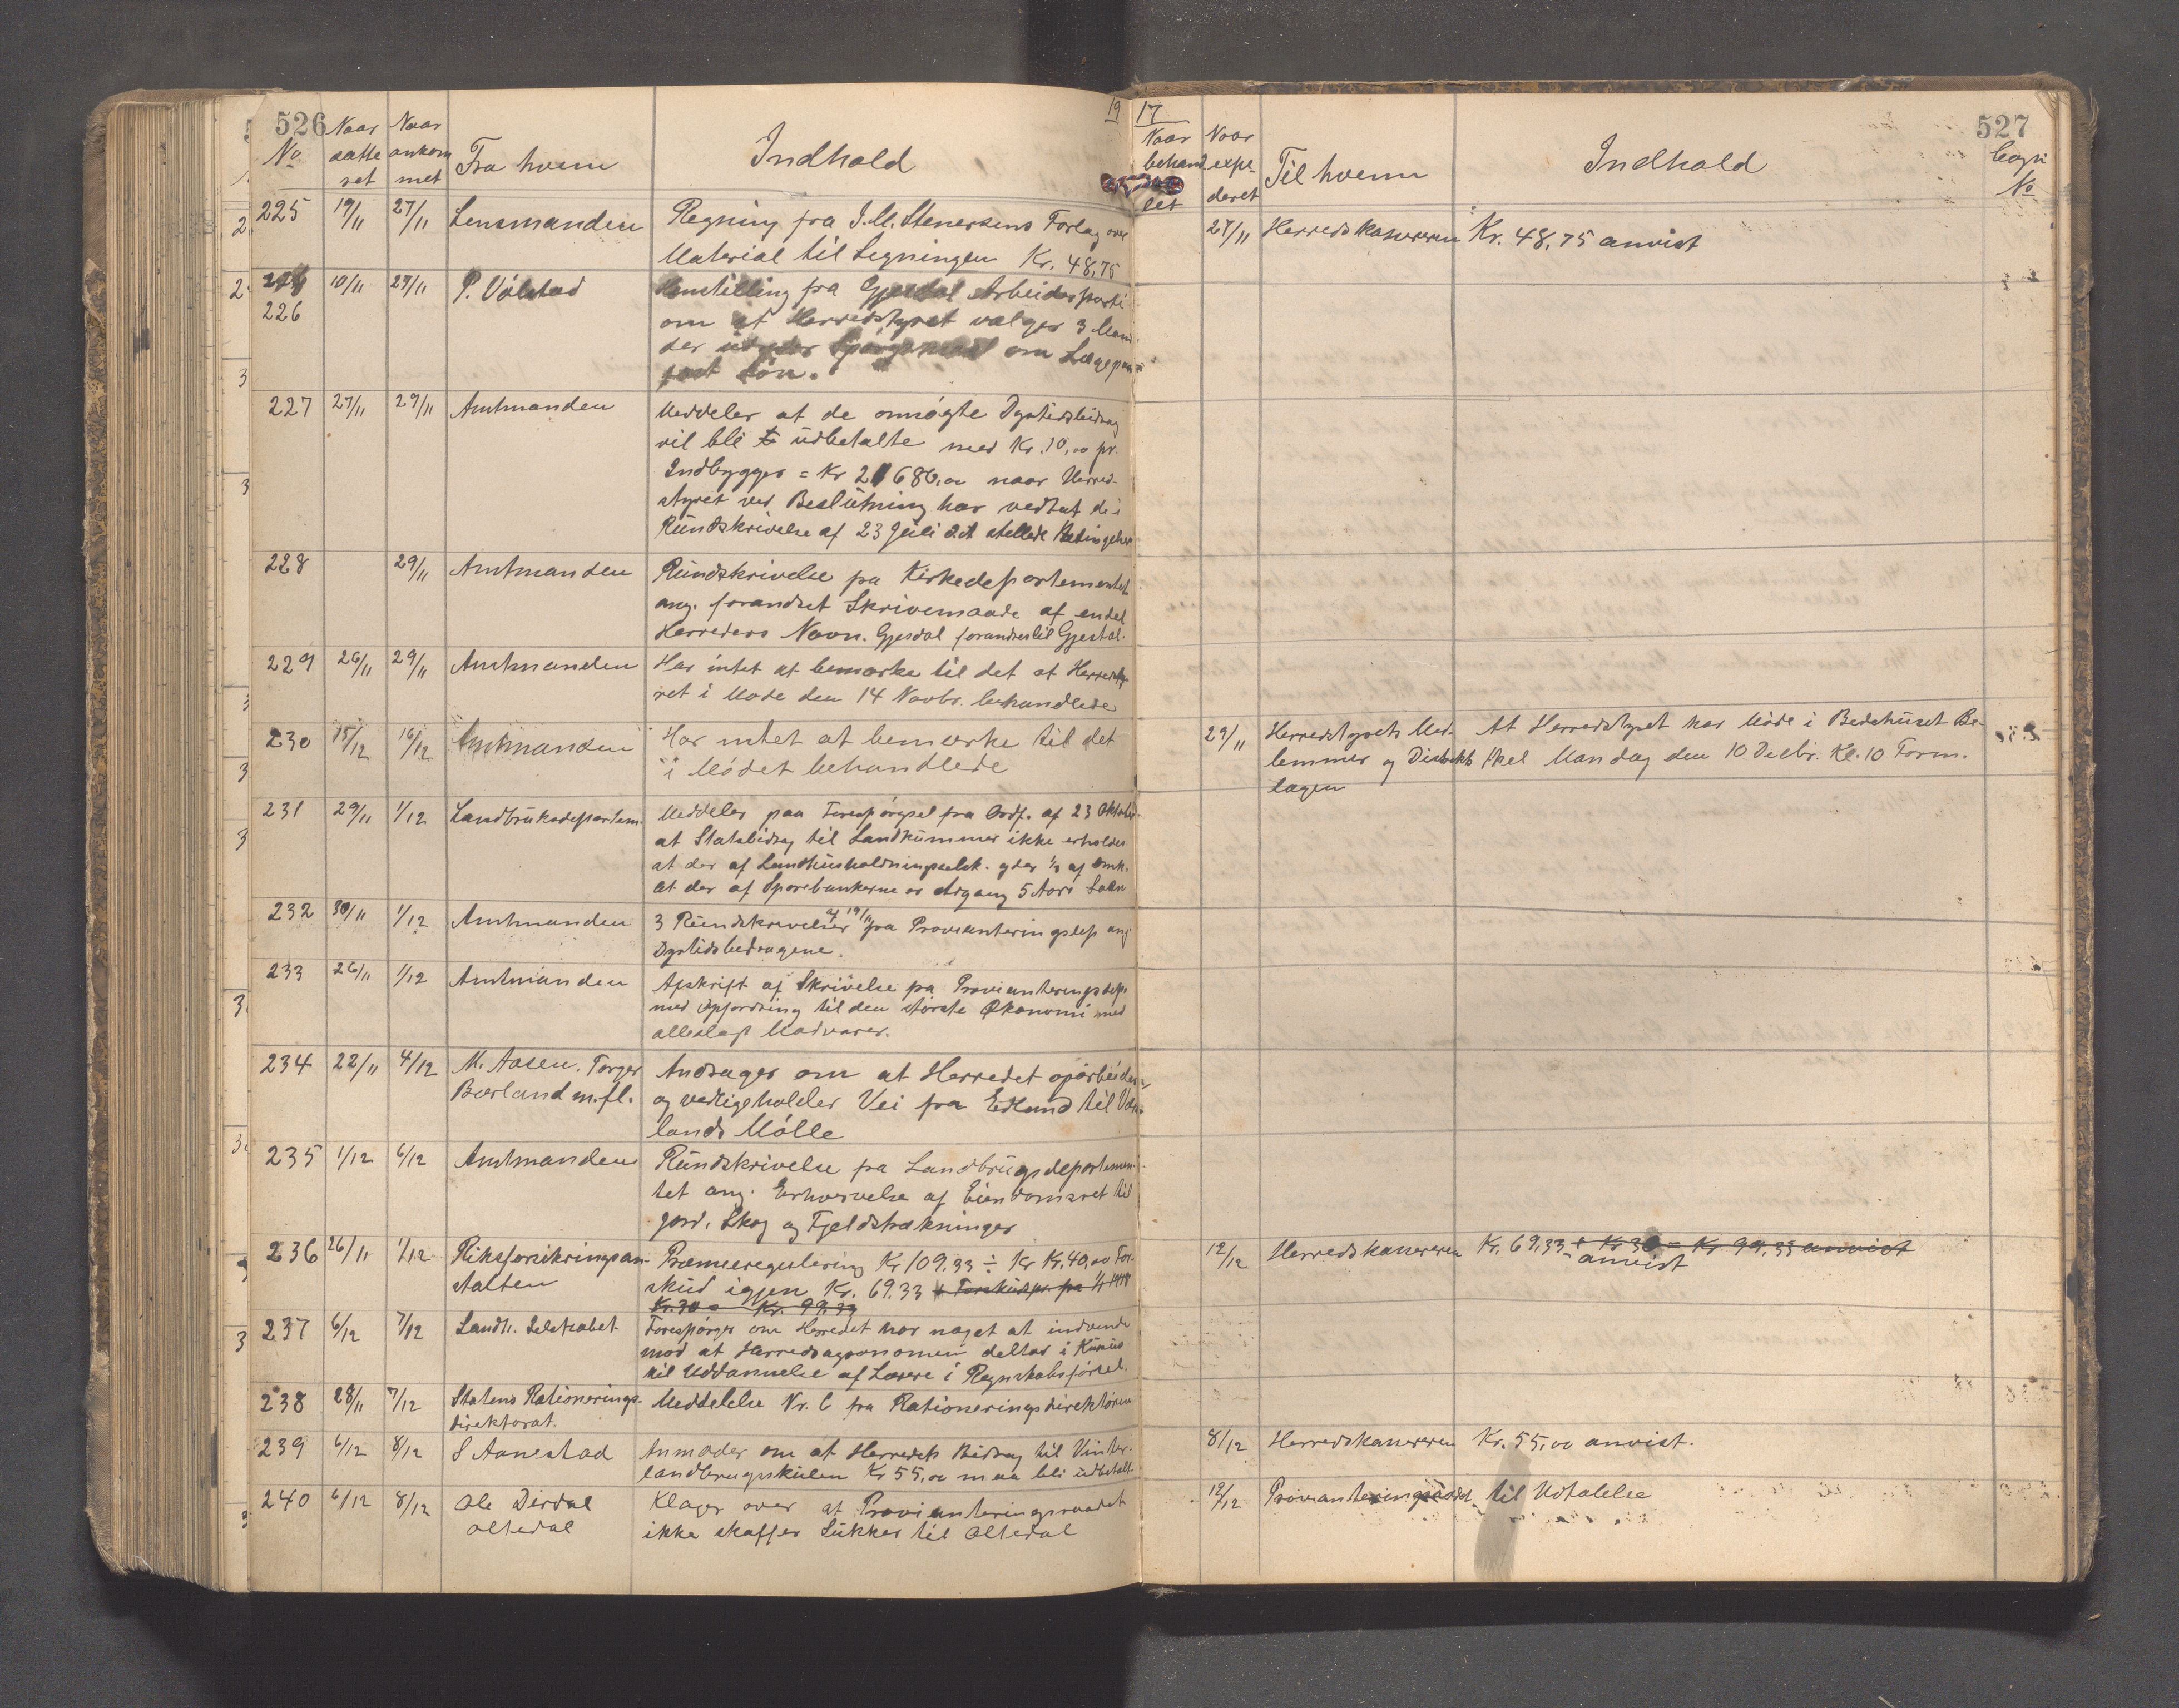 526
No
Naar datte ret
Naar ankom met
Fra hvem
Indhold
19
225 19/11 27/11 Lensmanden Regning fra J.M. Stenersens Forlag over
Material til Ligningen Kr. 48,75
226 10/11 27/11 P. Válstad Henstilling fra Gjesdal Arbeiderparti
om at Herredstyret vælger 3 Mæn
der om Læge paa
fast Løn.
227 27/11 29/11 Amtmanden Meddeler at de ansøgte Dyrtidsbidrag
vil bli udbetalte med Kr. 10,00 pr.
Indbygger = Kr 21680,00 naar Herred-
styret ved Beslutning har vedtat de i
Rundskrivelse af 23 Juli d.A. stellede Betingelser
228 29/11 Amtmanden Rundskrivelse fra Kirkedepartementet
ang. forandret Skrivemaade af endel
Herreders Navn. Gjesdal forandres til Gjestal.
229 26/11 29/11 Amtmanden Har intet at bemærke til det at Herredsty
ret i Møde den 14 Novbr. behandlede
230 15/12 16/12 Amtmanden Har intet at bemærke til det
i Mødet behandlede
231 29/11 1/12 Landbruksdepartem. Meddeler paa Forespørgsel fra Ordf. af 23 Oktober
at Statsbidrag til Landkummer ikke erholdes
at der af Landhusholdningselsk. yder 1/3 af Omk.
at der af Sparebankerne er Adgang 5 Aars Laan
232 30/11 1/12 Amtmanden 3 Rundskrivelser af 19/11 fra Provianteringsdep ang
Dyrtidsbedragene.
233 26/11 1/12 Amtmanden Afskrift af Skrivelse fra Provianteringsdep.
med Opfordring til den største Økonomi med
alleslags Madvarer.
234 22/11 4/12 M. Aasen, Torger Andrager om at Herredet oparbeider
Bærland m.fl. og vedligeholder Vei fra Edland til
lands Mølle
235 1/12 6/12 Amtmanden Rundskrivelse fra Landbrugsdepartemen-
tet ang. Erhvervelse af Eiendomsret til
Jord, Skog og Fjeldstrækninger
236 26/11 1/12 Riksforsikringsan- Præmieregulering Kr 109.33 ÷ Kr Kr. 40,00 For-
stalten skud igjen Kr. 69.33 + Forskudspr. fra 1/1 1918
Kr. 30 = Kr. 99.33
237 6/12 7/12 Landh. Selskabet Forespørger om Herredet har noget at indvende
mod at Herredsagronomen deltar i Kursus
til Uddannelse af Lærere i Regnskabsførsel.
238 28/11 7/12 Statens Rationerings- Meddelelse Nr. 6 fra Rationeringsdirektøren
direktorat.
239 6/12 8/12 S Aanestad Anmoder om at Herredets Bidrag til Vinter-
landbrugsskulen Kr 55,00 maa bli udbetalt
240 6/12 8/12 Ole Dirdal Klager over at Provianteringsraadet
Oltedal ikke skaffer Sukker til Oltedal
17
527
Naar behand let
Naar expe- deret
Til hvem
Indhold
No
27/11 Herredskassereren Kr. 48,75 anvist
29/11 Herredstyrets Med- At Herredstyret har Møde i Bedehuset Be-
lemmer og Distrikts tkel Mandag den 10 Decbr. Kl. 10 Form.
lægen
12/12 Herredskassereren Kr. 69.33 + Kr 30 = Kr 99.33 anvist
anvist
8/12 Herredskassereren Kr. 55,00 anvist.
12/12 Provianteringsraadet til Udtalelse